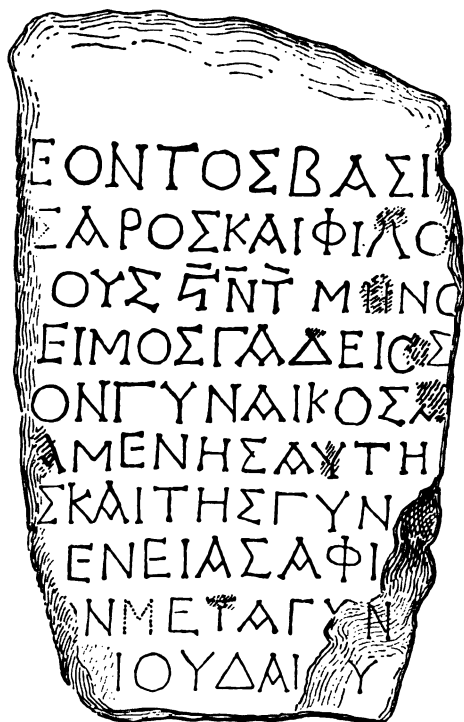 ΕΟΝΤΟΣΒΑΣΙ
ΣΑΡΟΣΚΑΙΦΙΛΟ
ΟΥΣ ϚΝΤ ΜΗΝΟ
ΕΙΜΟΣΓΑΔΕΙΟΣ
ΟΝΓΥΝΑΙΚΟΣΑ
ΑΜΕΝΗΣΑΥΤΗ
ΣΚΑΙΤΗΣΓΥΝ
ΕΝΕΙΑΣΑΦΙ
ΝΜΕΤΑΓΥΝ
ΙΟΥΔΑΙΟΥ